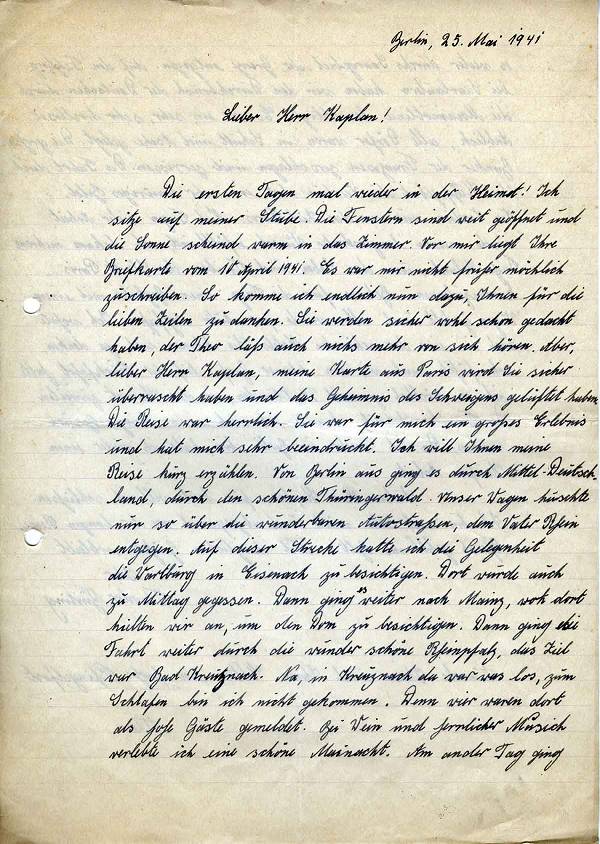 Berlin, 25. Mai 1941
Lieber Herr Kaplan!
Die ersten Tagen mal wieder in der Heimat! Ich
sitze auf meiner Stube. Die Fenstern sind weit geöffnet und
die Sonne scheind warm in das Zimmer. Vor mir liegt Ihre
Briefkarte vom 10 April 1941. Es war mir nicht früher möchlich
zuschreiben. So komme ich endlich nun dazu, Ihnen für die
lieben Zeilen zu danken. Sie werden sicher wohl schon gedacht
haben, der Theo läß auch nichs mehr von sich hören. Aber,
lieber Herr Kaplan, meine Karte aus Paris wird Sie sicher
überrascht haben und das Geheimnis des Schweigens gelüftet haben.
Die Reise war herrlich. Sie war für mich ein großes Erlebnis
und hat mich sehr beeindruckt. Ich will Ihnen meine
Reise kurz erzählen. Von Berlin aus ging es durch Mittel-Deutsch-
land, durch den schönen Thüringerwald. Unser Wagen huschte
nur so über die wunderbaren Autostraßen, dem Vater Rhein
entgegen. Auf dieser Strecke hatte ich die Gelegenheit
die Wartburg in Eisenach zu besichtigen. Dort wurde auch
zu Mittag gegessen. Dann ging es weiter nach Mainz, dort
hielten wir an, um den Dom zu besichtigen. Dann ging die
Fahrt weiter durch die wunder schöne Rheinpfalz, das Ziel
war Bad Kreuznach. Na, in Kreuznach da war was los, zum
Schlafen bin ich nicht gekommen. Denn wier waren dort
als hohe Gäste gemeldet. Bei Wein und herrlicher Musich
verlebte ich eine schöne Mainacht. Am ander Tag ging